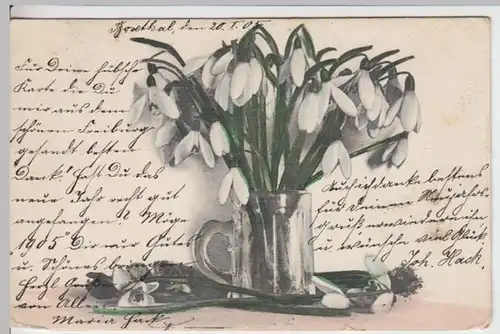 Broethal, den 20. I. 05
Für Deine hübsche
Karte die Du
mir aus dem
schönen Freiburg
gesandt besten
Dank! Hast Du das
neue Jahr recht gut
angefangen? Möge
"1905" Dir nur Gutes
u. Schönes
Herzl.
von Allen
Maria Hack
Auch ich danke bestens
für Deinen Neujahrs-
gruß
u. wünsche viel Glück.
Joh. Hack.